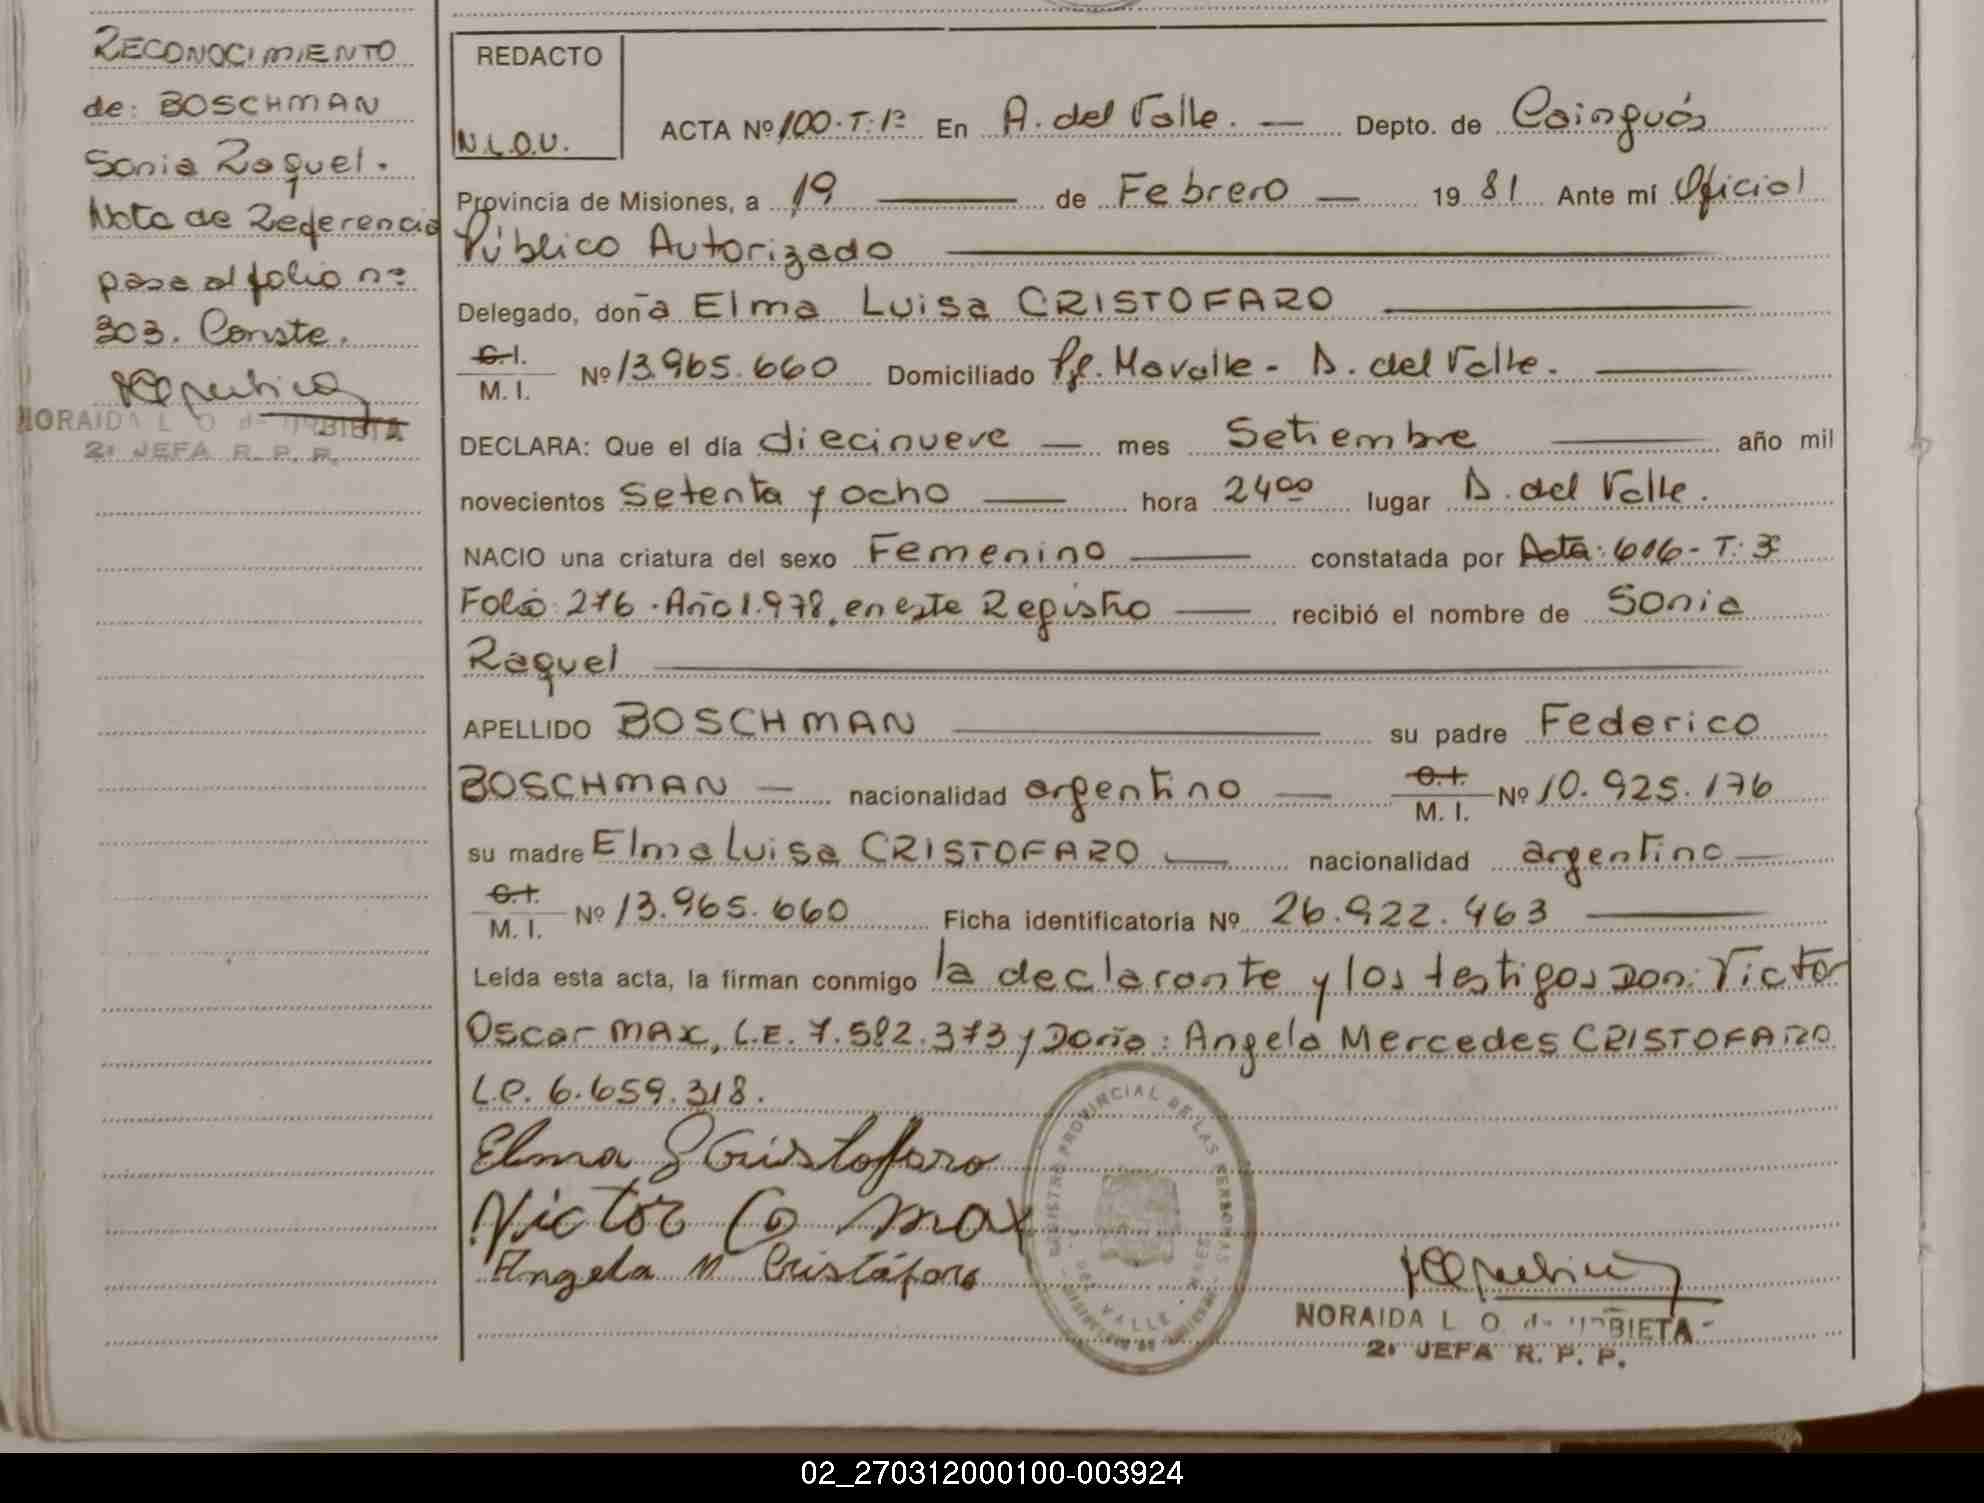 RECONOCIMIENTO
de: BOSCHMAN
Sonia Raquel.
Nota de Referencia
pasa al folio nº
303. Conste.
NORAIDA L O de URBIETA
2ª JEFA R. P. P.
REDACTO
N.L.O.U.
ACTA Nº 100-T:1º En A. del Valle. — Depto. de Cainguás
Provincia de Misiones, a 19 — de Febrero — 1981 Ante mí Oficial
Público Autorizado
Delegado, doña Elma Luisa CRISTOFARO
C.I.
M. I. Nº 13.965.660 Domiciliado Pje. Mavalle - A. del Valle.
DECLARA: Que el día diecinueve — mes Setiembre — año mil
novecientos Setenta y ocho — hora 24⁰⁰ lugar A. del Valle.
NACIO una criatura del sexo Femenino — constatada por Acta: 616- T: 3º
Folio: 276. Año 1.978, en este Registro — recibió el nombre de Sonia
Raquel
APELLIDO BOSCHMAN — su padre Federico
BOSCHMAN — nacionalidad argentino — C.I.
M. I. Nº 10.925.176
su madre Elma Luisa CRISTOFARO — nacionalidad argentino —
C.I.
M. I. Nº 13.965.660 Ficha identificatoria Nº 26.922.463
Leída esta acta, la firman conmigo la declarante y los testigos Don: Victor
Oscar MAX, L.E. 7.582.373 y Doña: Angela Mercedes CRISTOFARO
L.C. 6.659.318.
Elma L Cristofaro
Victor O max
Angela M Cristófaro
REGISTRO PROVINCIAL DE LAS PERSONAS
DEL VALLE - MNES
NORAIDA L O. de URBIETA
2ª JEFA R. P. P.
02_270312000100-003924